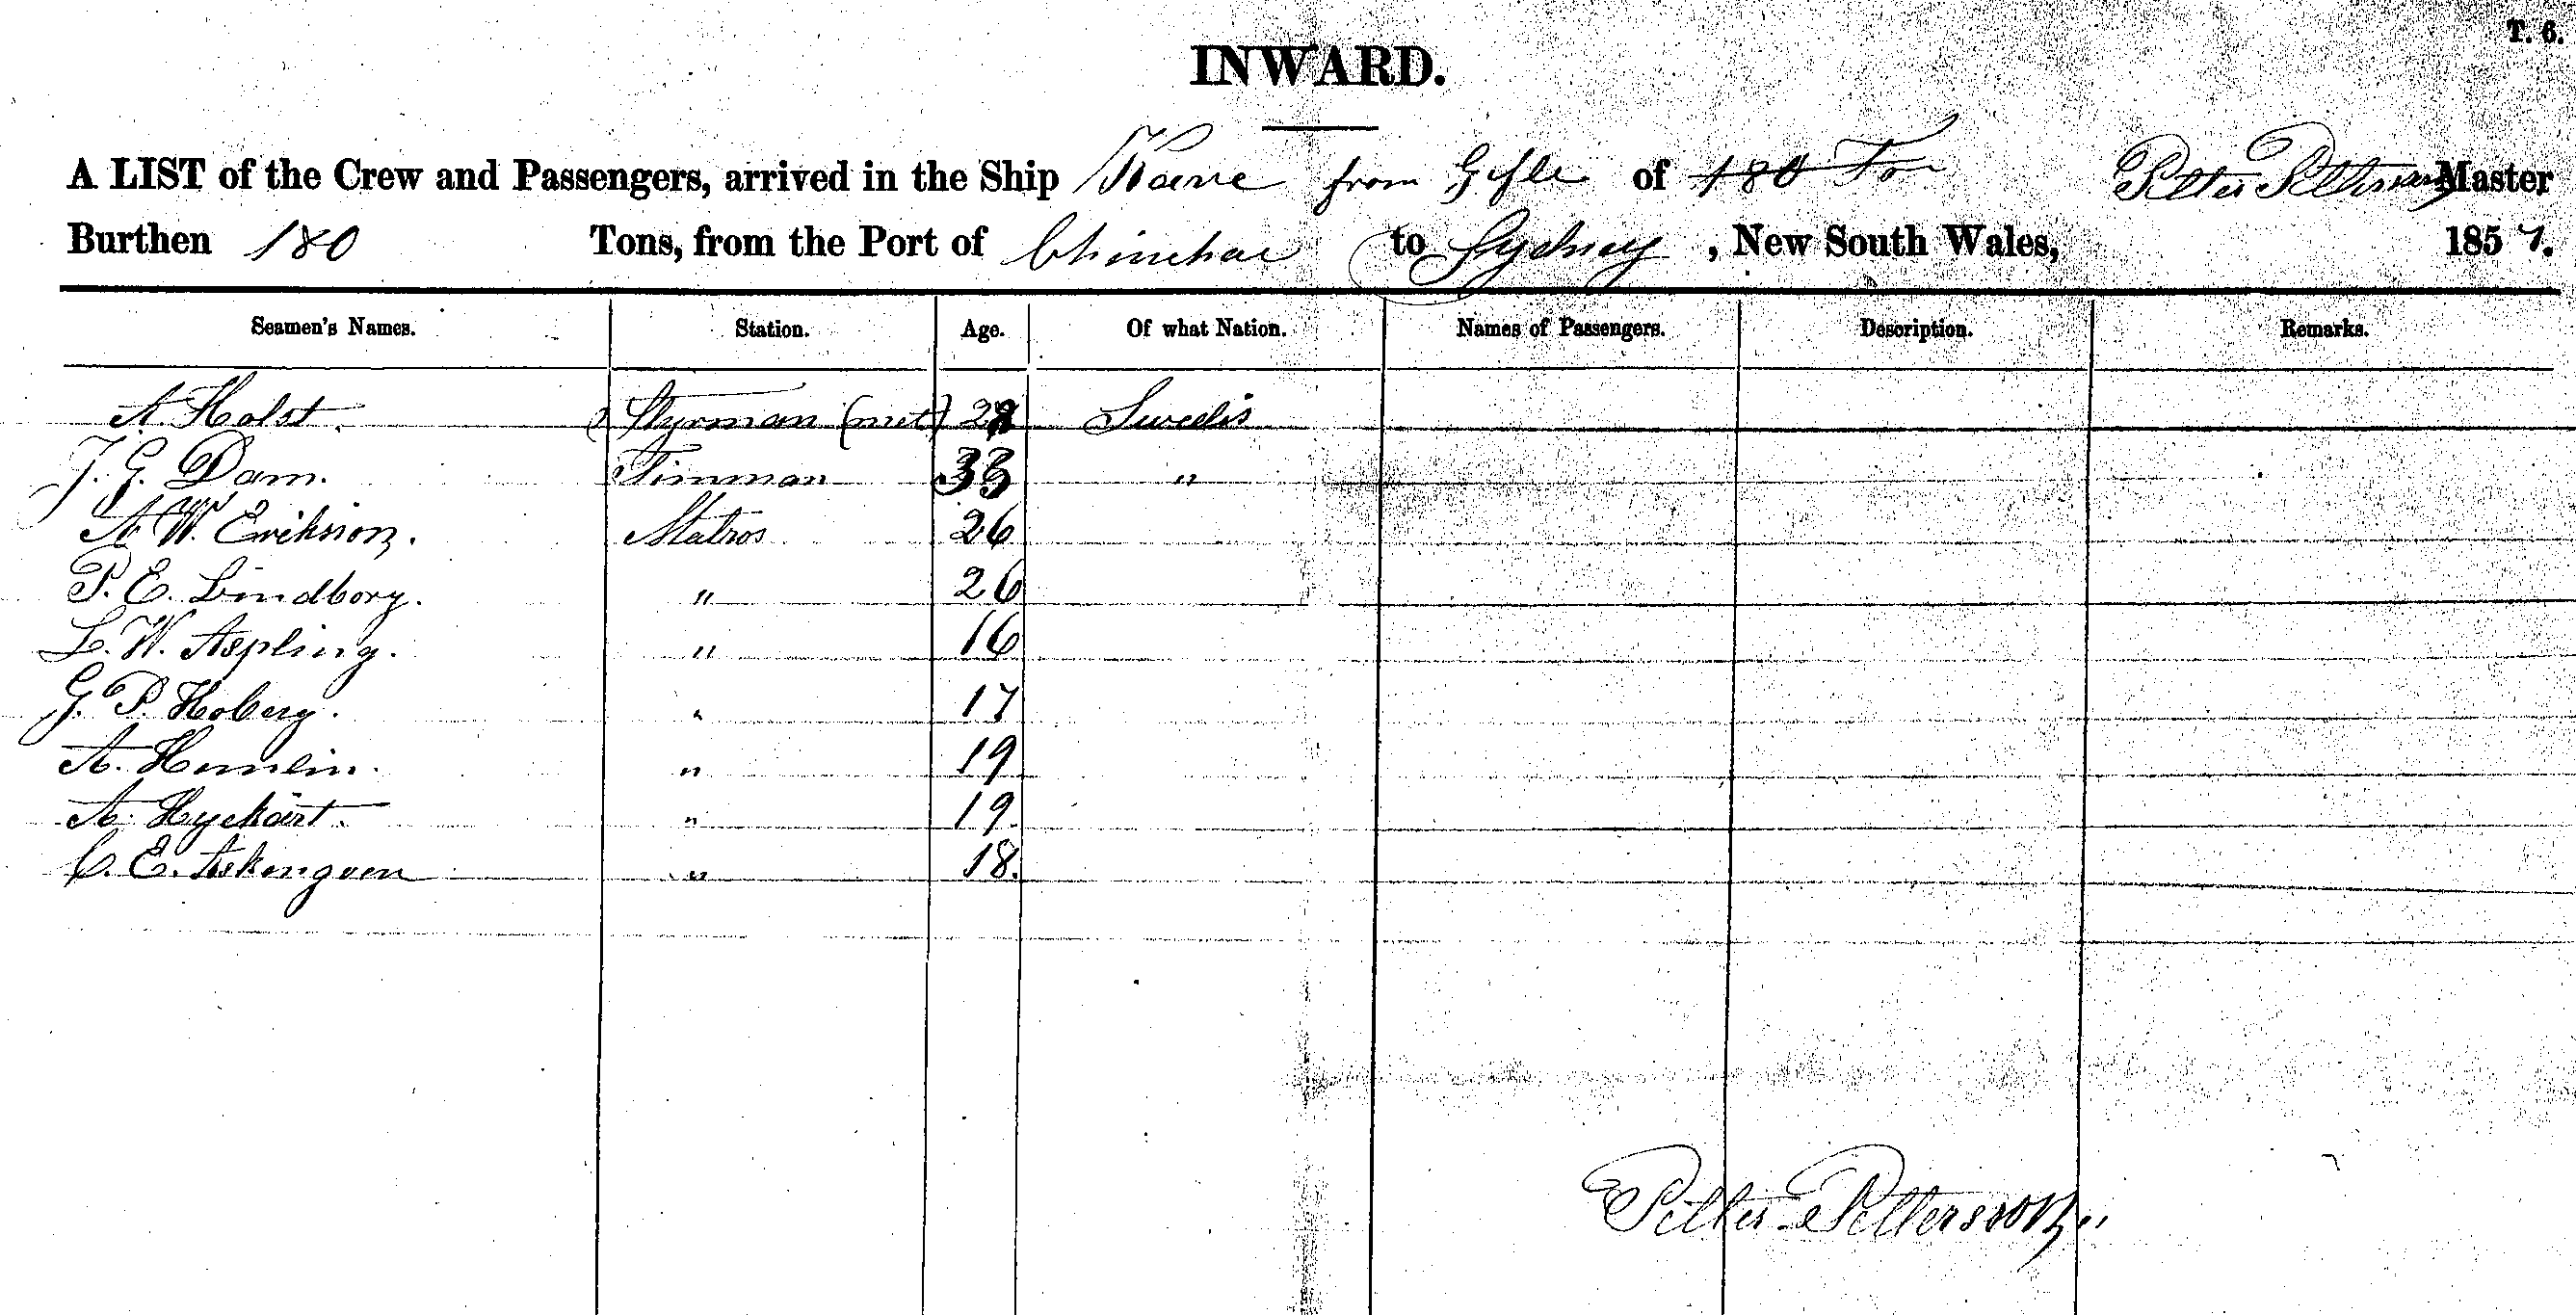 T. 6.
INWARD.
A LIST of the Crew and Passengers, arrived in the Ship from Gefle of 180 To Petter Pettersson Master
Burthen 180 Tons, from the Port of to Sydney, New South Wales, 1857.
Seamen's Names. Station. Age. Of what Nation. Names of Passengers. Description. Remarks.
A. Holst. Styrman (met) Swedis
J. G. Dam. Timman 33 "
A. W. Erikson. Matros 26
P. E. Lindborg. " 26
L. W. Aspling. " 16
G. P. Hoberg. " 17
A. " 19
A. Hyckärt. " 19
C. E. " 18.
Petter Pettersson